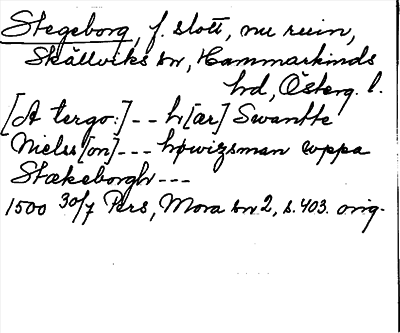 Stegeborg, f. slott, nu ruin,
Skällviks sn, Hammarkinds
hd, Österg. l.
[A tergo:] -- h[ar] Swantte
Nielss[on] --- høwizman wppa
Stækeborgh ---
1500 30/7 Pers, Mora sn 2, s. 403. orig.